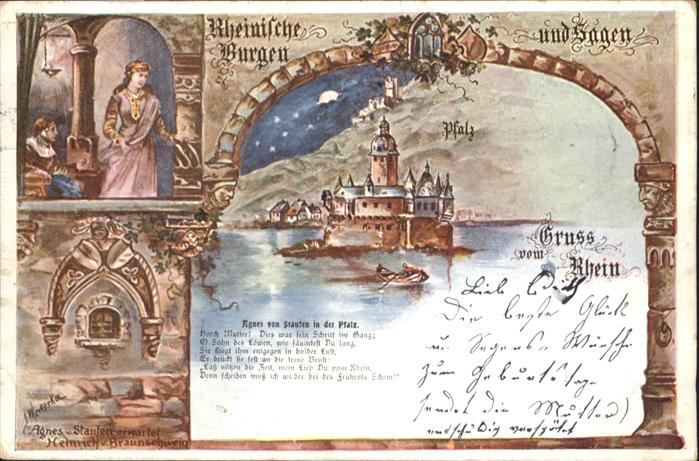 Rheinische
Burgen
und Sagen
Pfalz
Gruss
vom Rhein
Agnes von Staufen in der Pfalz.
Horch Mutter! Dies war sein Schritt im Gang;
O Sohn des Löwen, wie säumtest Du lang.
Sie fliegt ihm entgegen in holder Lust,
Er drückt sie fest an die treue Brust:
"Laß nützen die Zeit, mein Lieb Du vom Rhein,
Denn scheiden muß ich wieder bei des Frührots Schein!"
Die beste Glück
u. Segens-Wünsche
zum Geburtstage
sendet die Mutter)
entschuldig verspätet
Agnes v. Staufen erwartet
Heinrich v. Braunschweig